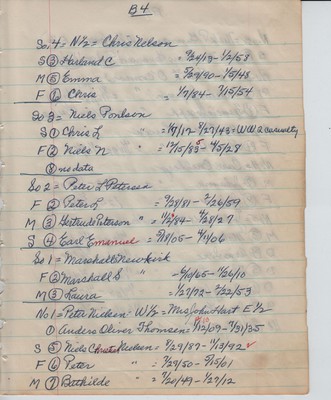 B4
So. 4 = N½ = Chris Nelson
S ③ Harland C = 9/20/19 - 1/2/53
M ⑤ Emma = 5/29/90 - 1/5/48
F ⑥ Chris = 1/7/84 - 7/15/54
So 3 = Niels Poulson
S ① Chris L " = 1/9/17 - 8/27/43 = WW2 casualty
F ② Niels N " = 11/15/83 - 4/5/28
⑧ no data
So 2 = Peter L Petersen
F ② Peter L = 9/28/81 - 2/26/59
M ③ Gertrude Peterson " = 11/2/84 - 4/28/27
S ④ Earl Emanuel = 5/18/05 - 4/1/06
So 1 = Marshall Newkirk
F ② Marshall S - 6/10/65 - 1/26/10
M ③ Laura = 1/27/72 - 2/22/53
No. 1 = Peter Nielsen W½ = Mrs John Hart E½
① Anders Oliver Thomsen = 11/12/09 - 7/31/35
S ⑤ Niels Christ Nielsen = 8/29/87 - 11/13/92 ✓
F ⑥ Peter " = 7/29/50 - 5/15/01
M ⑦ Bothilde " = 2/20/49 - 1/27/12